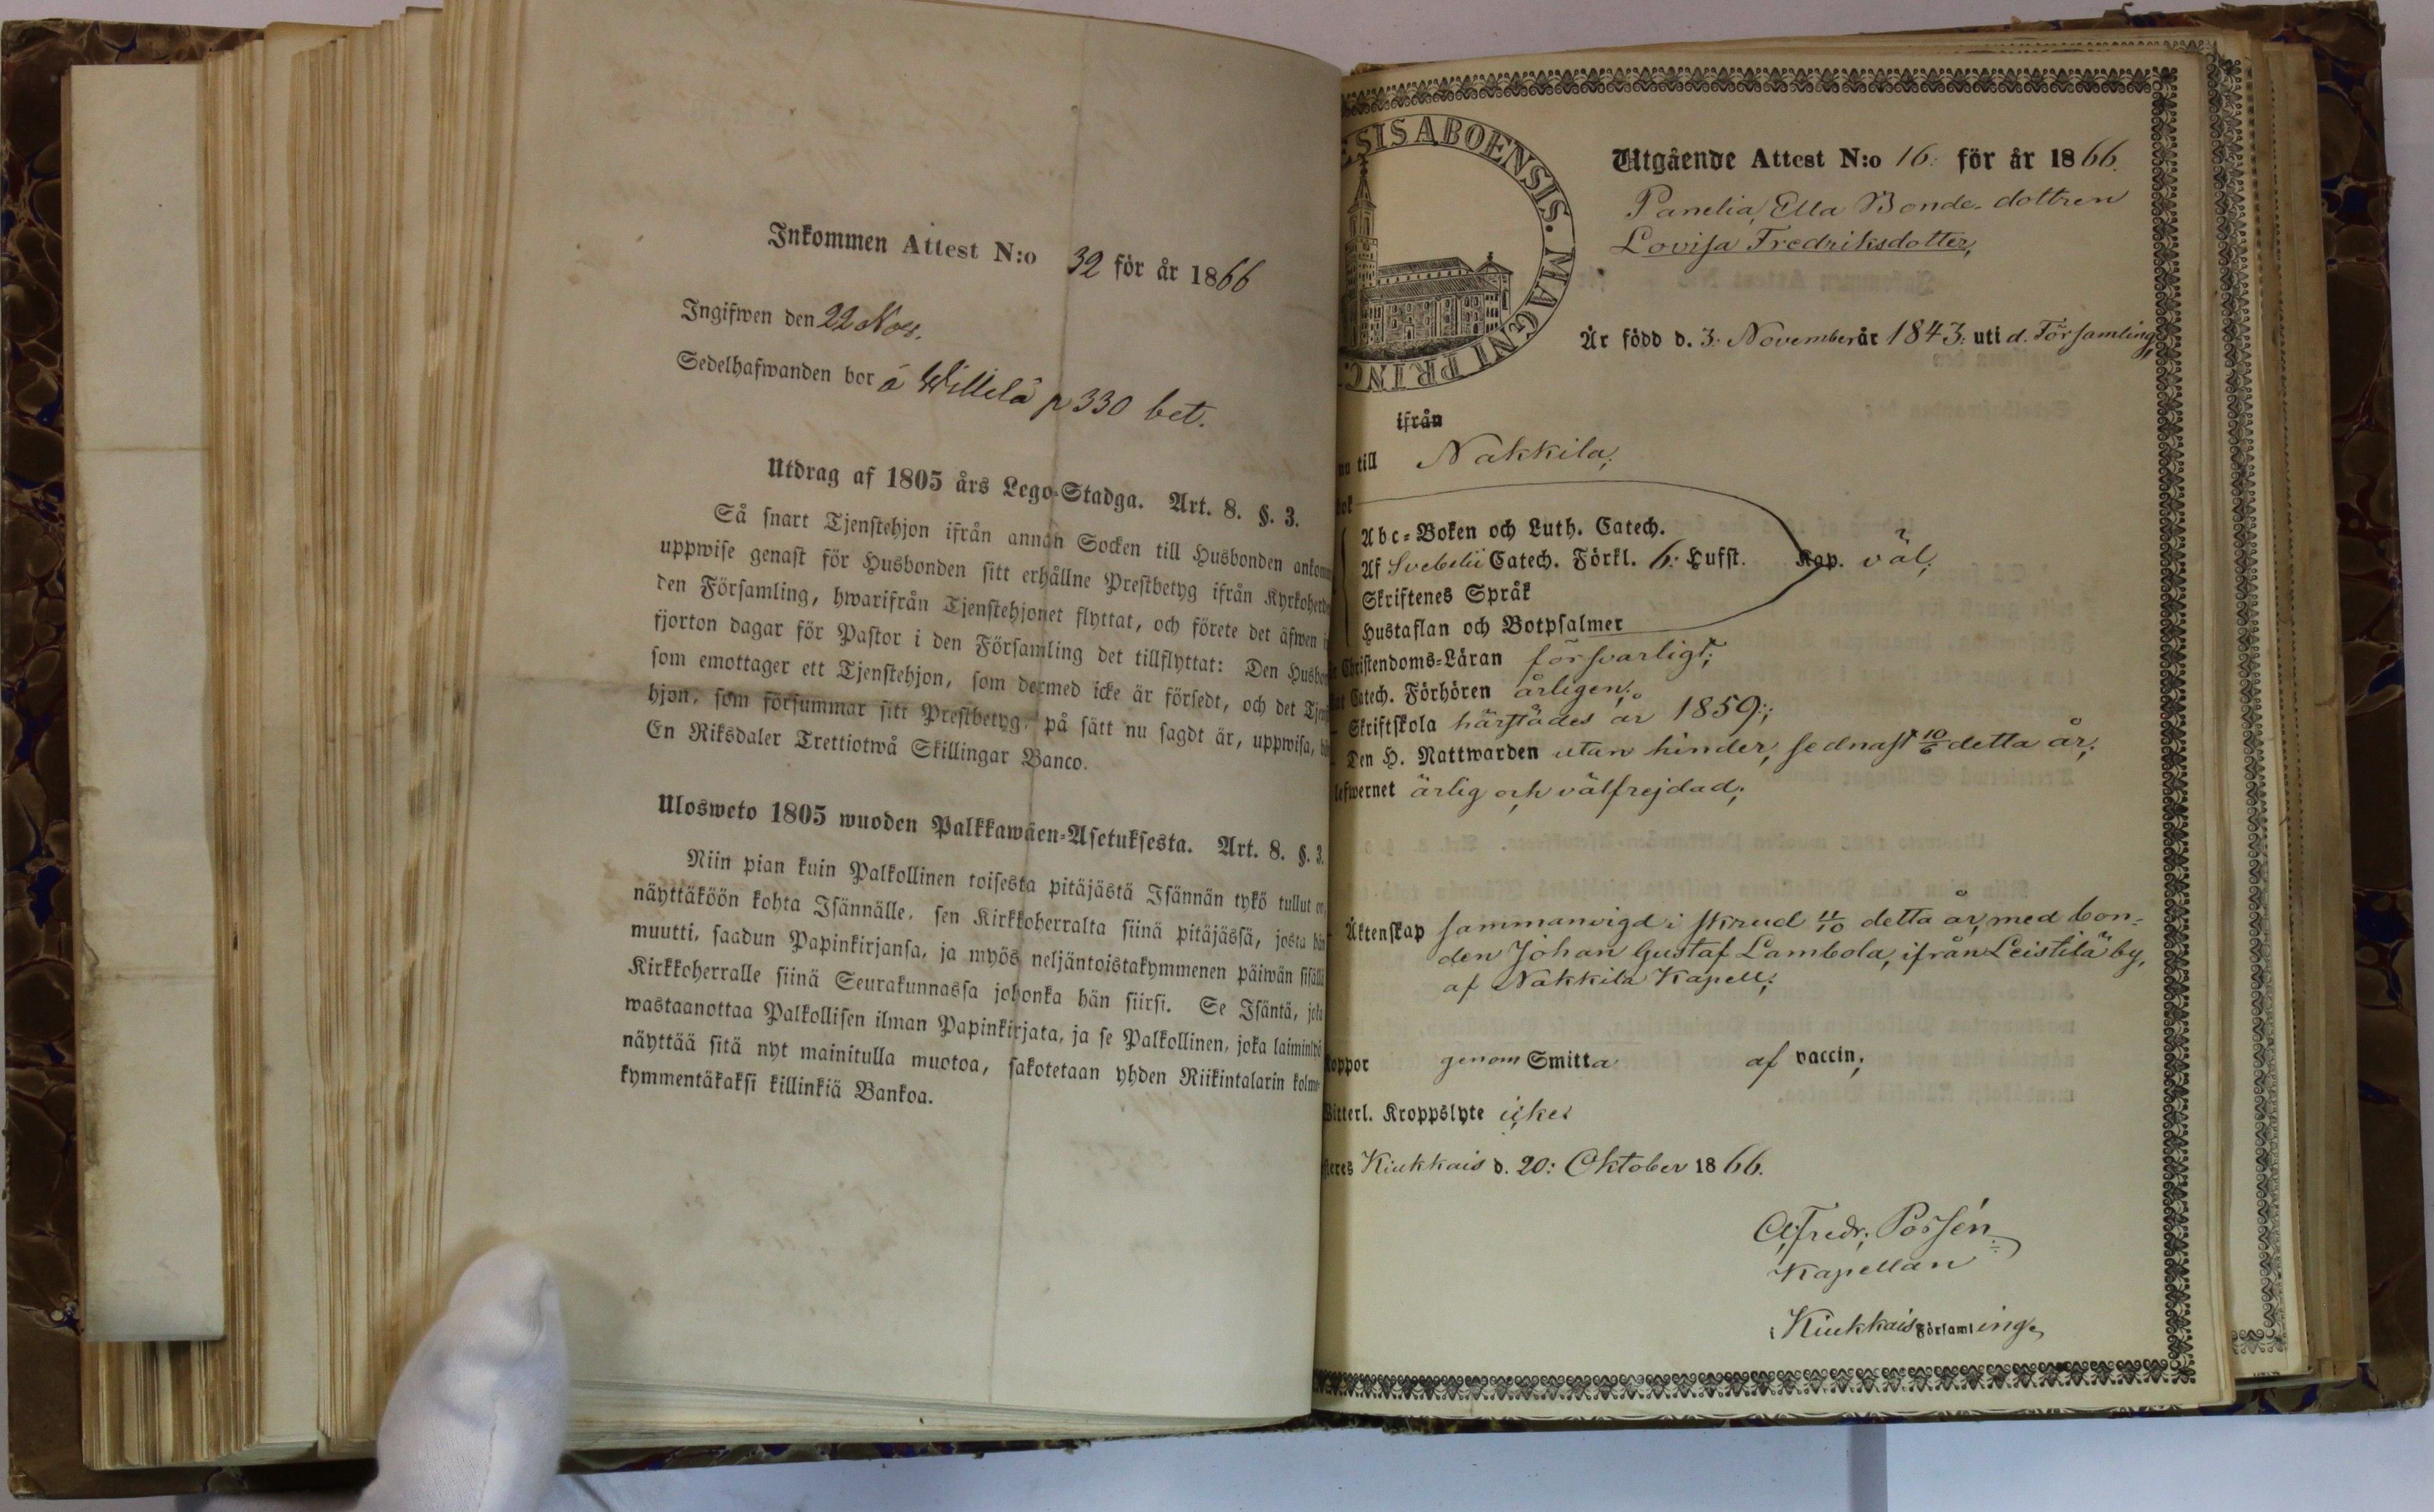 Inkommen Attest N:o 32 för år 1866
Ingifwen den 22 Nov.
Sedelhafwanden bor å Willilä p 330 bet.
Utdrag af 1805 års Lego-Stadga. Art. 8. §. 3.
Så snart Tjenstehjon ifrån annan Socken till Husbonden
uppwise genast för Husbonden sitt erhållne Prestbetyg ifrån
den Församling, hwarifrån Tjenstehjonet flyttat, och förete det äfwen
fjorton dagar för Pastor i den Församling det tillflyttat: Den
som emottager ett Tjenstehjon, som dermed icke är försedt, och det
hjon, som försummar sitt Prestbetyg, på sätt nu sagdt är, uppwisa,
En Riksdaler Trettiotwå Skillingar Banco.
Ulosweto 1805 wuoden Palkkawäen-Asetuksesta. Art. 8. §. 3.
Niin pian kuin Palkollinen toisesta pitäjästä Isännän tykö tullut on,
näyttäköön kohta Isännälle, sen Kirkkoherralta siinä pitäjässä, josta hän
muutti, saadun Papinkirjansa, ja myös neljäntoistakymmenen päiwän sisällä
Kirkkoherralle siinä Seurakunnassa johonka hän siirsi. Se Isäntä, joka
wastaanottaa Palkollisen ilman Papinkirjata, ja se Palkollinen, joka
näyttää sitä nyt mainitulla muotoa, sakotetaan yhden Riikintalarin kolme-
kymmentäkaksi killinkiä Bankoa.
ESIS ABOENSIS. MAGNI PRINC
Utgående Attest N:o 16. för år 1866.
Panelia, Ella Bonde-dottren
Lovisa Fredriksdotter,
Är född d. 3: November år 1843: uti d. Församling,
ifrån
nu till Nakkila;
bok
Abc-Boken och Luth. Catech.
Af Svebilii Catech. Förkl. 6: Hufst. Kap. väl;
Skriftenes Språk
Hustaflan och Botpsalmer
Christendoms-Läran försvarligt;
Catech. Förhören årligen;
Skriftskola härstädes år 1859;
Den H. Nattwarden utan hinder, sednast 10/6 detta år;
lefwernet ärlig och välfrejdad;
Äktenskap sammanvigd i skrud 11/10 detta år, med bon-
den Johan Gustaf Lambola, ifrån Leistilä by,
af Nakkila Kapell;
Koppor genom Smitta af vaccin;
Witterl. Kroppslyte icke;
Kiukkais d. 20: Oktober 1866.
A. Fredr. Porsén
Kapellan
i Kiukkais Församling.